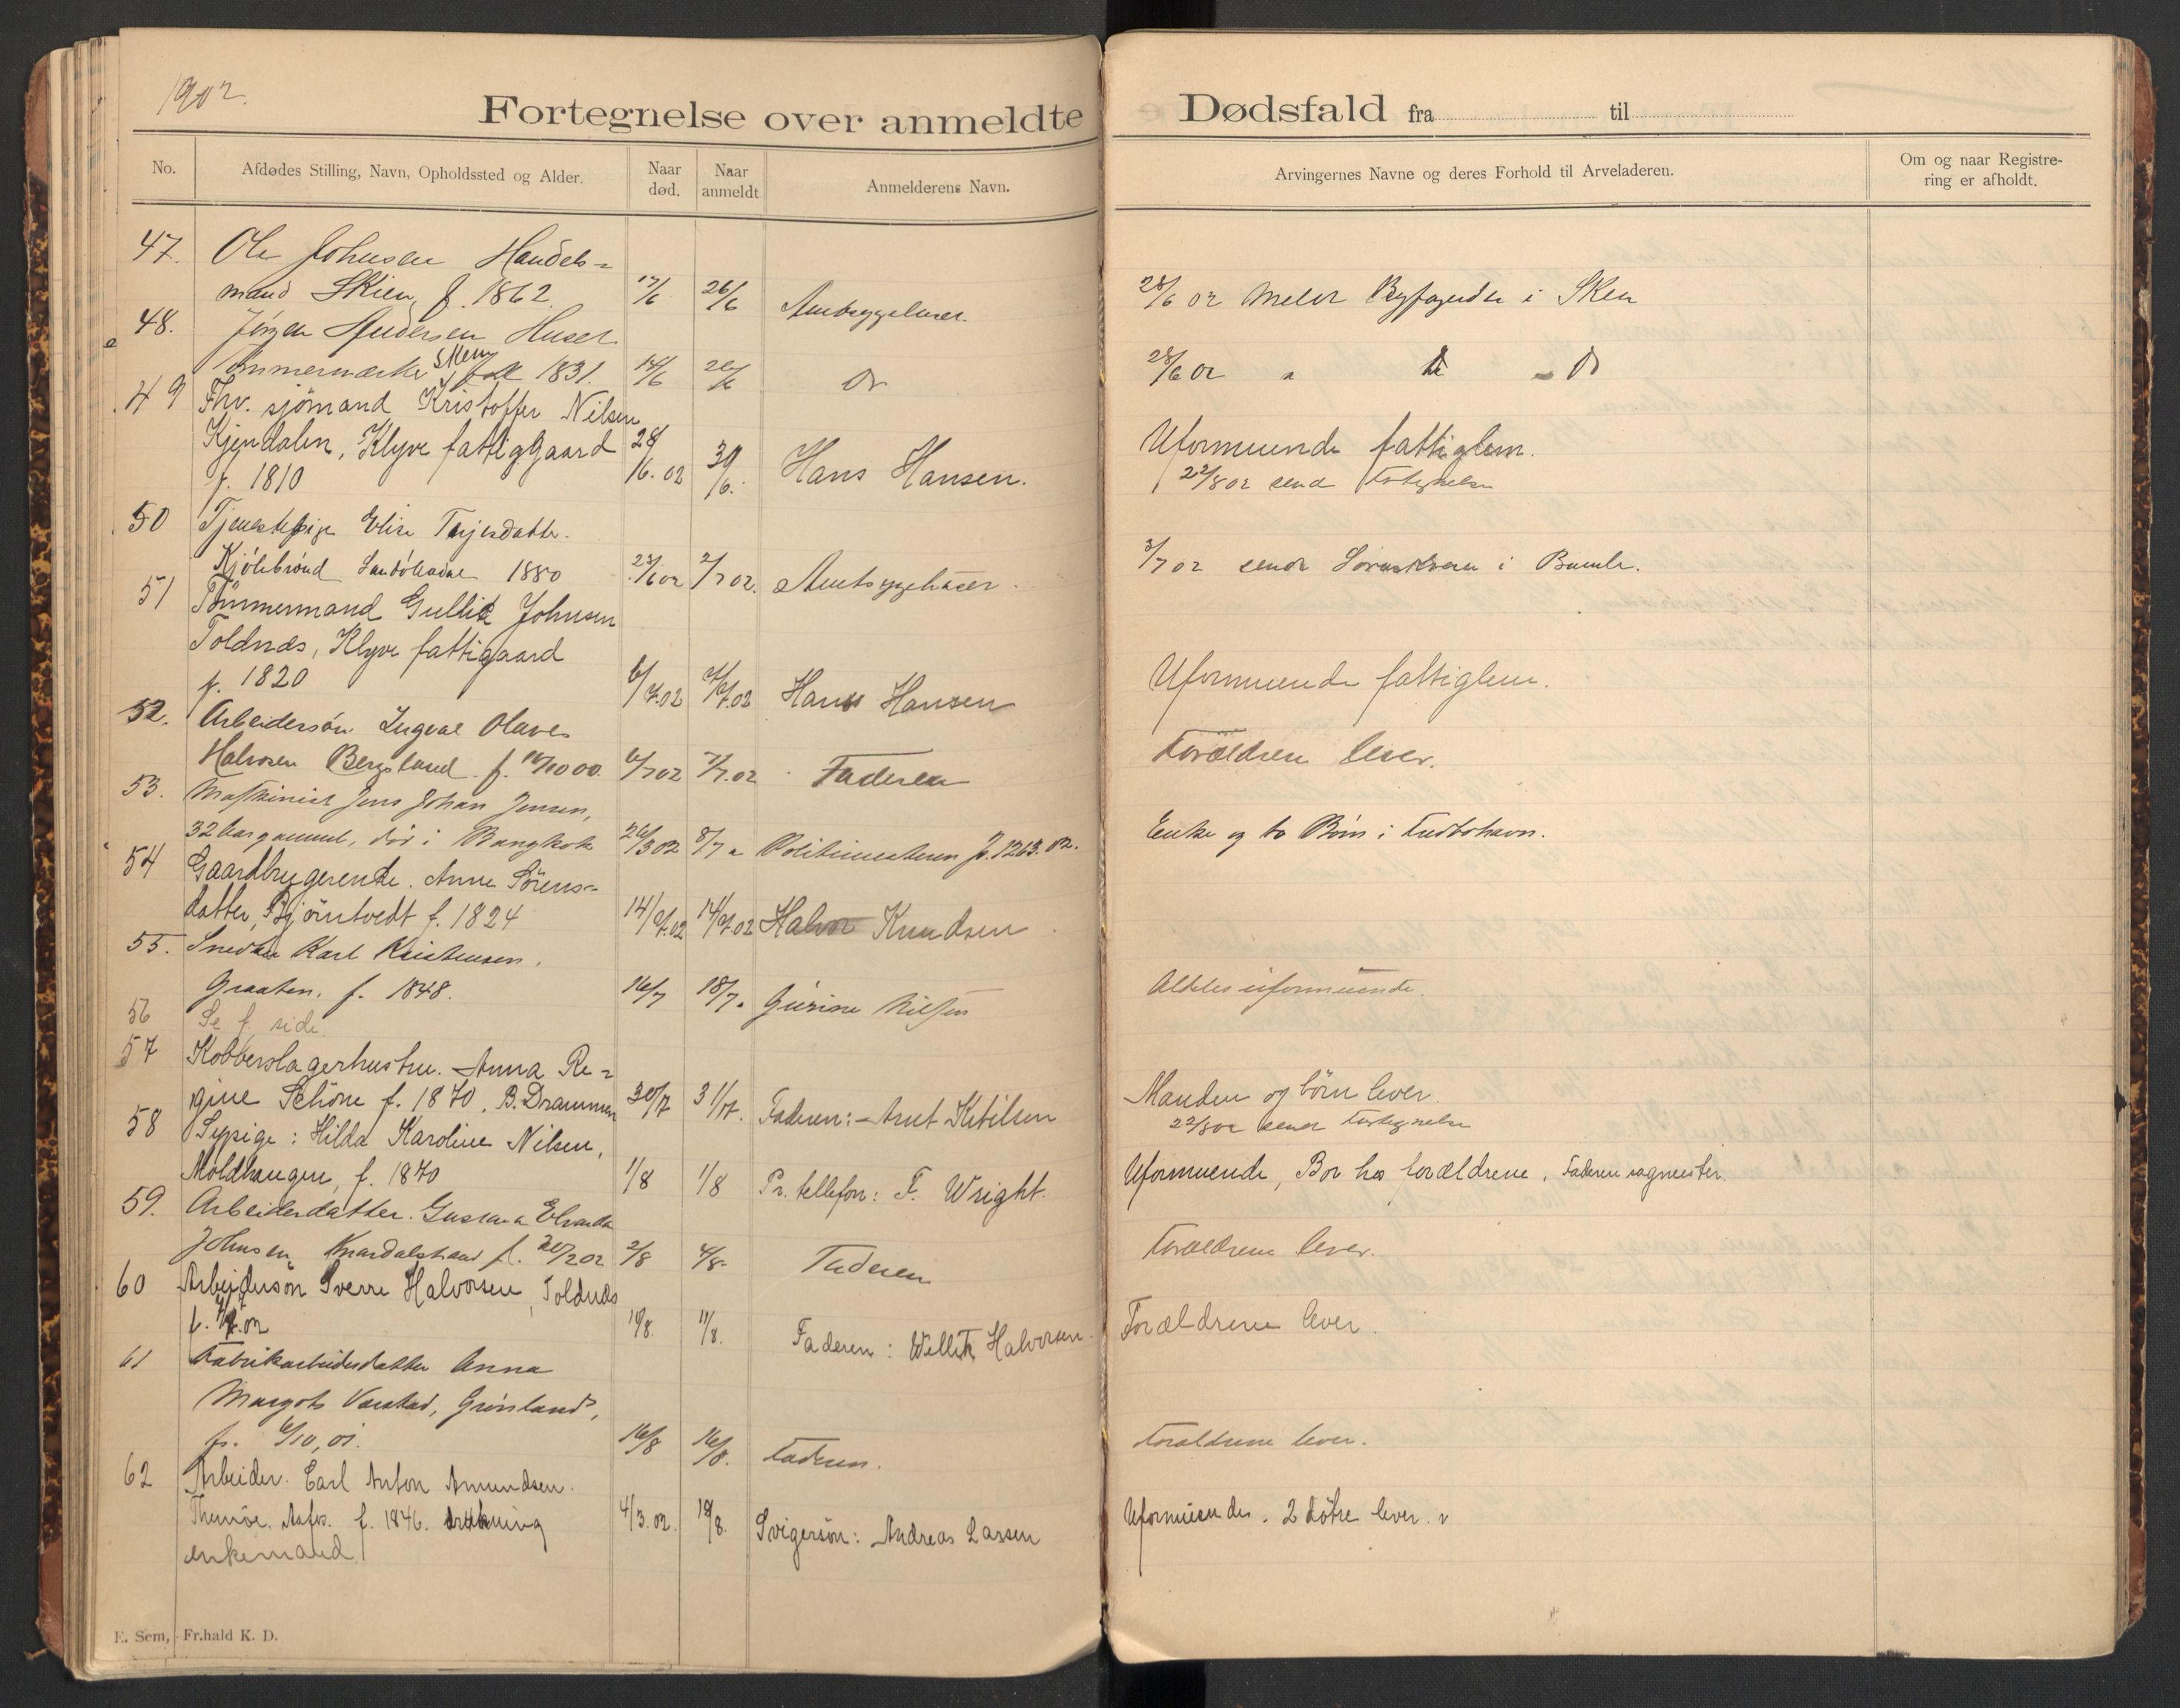 1902.
Fortegnelse over anmeldte Dødsfald fra til
No.
Afdødes Stilling, Navn, Opholdssted og Alder.
Naar død.
Naar anmeldt
Anmelderens Navn.
Arvingernes Navne og deres Forhold til Arveladeren.
Om og naar Registrering er afholdt.
47. Ole Johnsen Handels-
mand Skien, f. 1862. 17/6 26/6 Amtssygehuset. 28/6 02 Byfogden i Skien
48. Jørgen Andersen
Skien 1831. 14/6 Do 28/6 02 " Do
49 Fhv. sjömand Kristoffer Nilsen
Kjendalen, Klyve fattiggaard 28/6.02 30/6. Hans Hansen. Uformuende fattiglem.
f. 1810 22/8 02 send Fortegnelse
50 Tjenestepige Elise Terjesdatter.
Kjölebrönd 1880 2/7 02. Amtssygehuset. 3/7 02 sendt i Bamle.
51 Tömmermand Gullik Johnsen
Toldnæs, Klyve fattigaard
f. 1820 6/7.02 7/7.02 Hans Hansen Uformuende fattiglem.
52. Arbeidersön Ingval Olaves
Halvorsen Bergsland. f. 6/7 02 7/7.02 Faderen Forældrene lever.
53. Maskinist Jens Johan Jensen,
32 Aar gammel, död i Bangkok 26/3 02 8/7 " Politimesteren Jr. 1263.02. Enke og to Börn i
54 Gaardbrugerenke. Anne Sörens-
datter, Bjöntvedt f. 1824 14/7.02 14/7.02 Halvor Knudsen
55. Snedker Karl Kristensen.
Graaten. f. 1848. 16/7 18/7. Gurine Nilsen Aldeles uformuende.
56 Se f. side.
57 Kobberslagerhustru. Anna Re-
gine Schöne f. 1870. B. Drammen 30/7 31/7. Faderen: Arnt Ketilsen Manden og börn lever.
22/8 02 sendt Fortegnelse
58 Sypige: Hilda Karoline Nilsen,
Moldhaugen, f. 1870 1/8 1/8 Pr. tellefon: F. Wright. Uformuende, Bor hos forældrene. Faderen sagmester.
59. Arbeiderdatter. Gustava
Johnsen Knardalstrand f. 20/2 02 2/8 4/8. Faderen Forældrene lever.
60 Arbeidersön Sverre Halvorsen, Toldnæs
f. 02 10/8. 11/8. Faderen: Halvorsen. Forældrene lever.
61 Fabrikarbeiderdatter Anna
Margot Varstad, Grönland,
f. 6/10, 01. 16/8 16/8. Faderen. Forældrene lever.
62 Arbeider. Carl Anton Amundsen.
f. 1846. 4/3.02. 18/8. Svigersön: Andreas Larsen Uformuende. 2 dötre lever.
enkemand.
E. Sem, Fr.hald K. D.